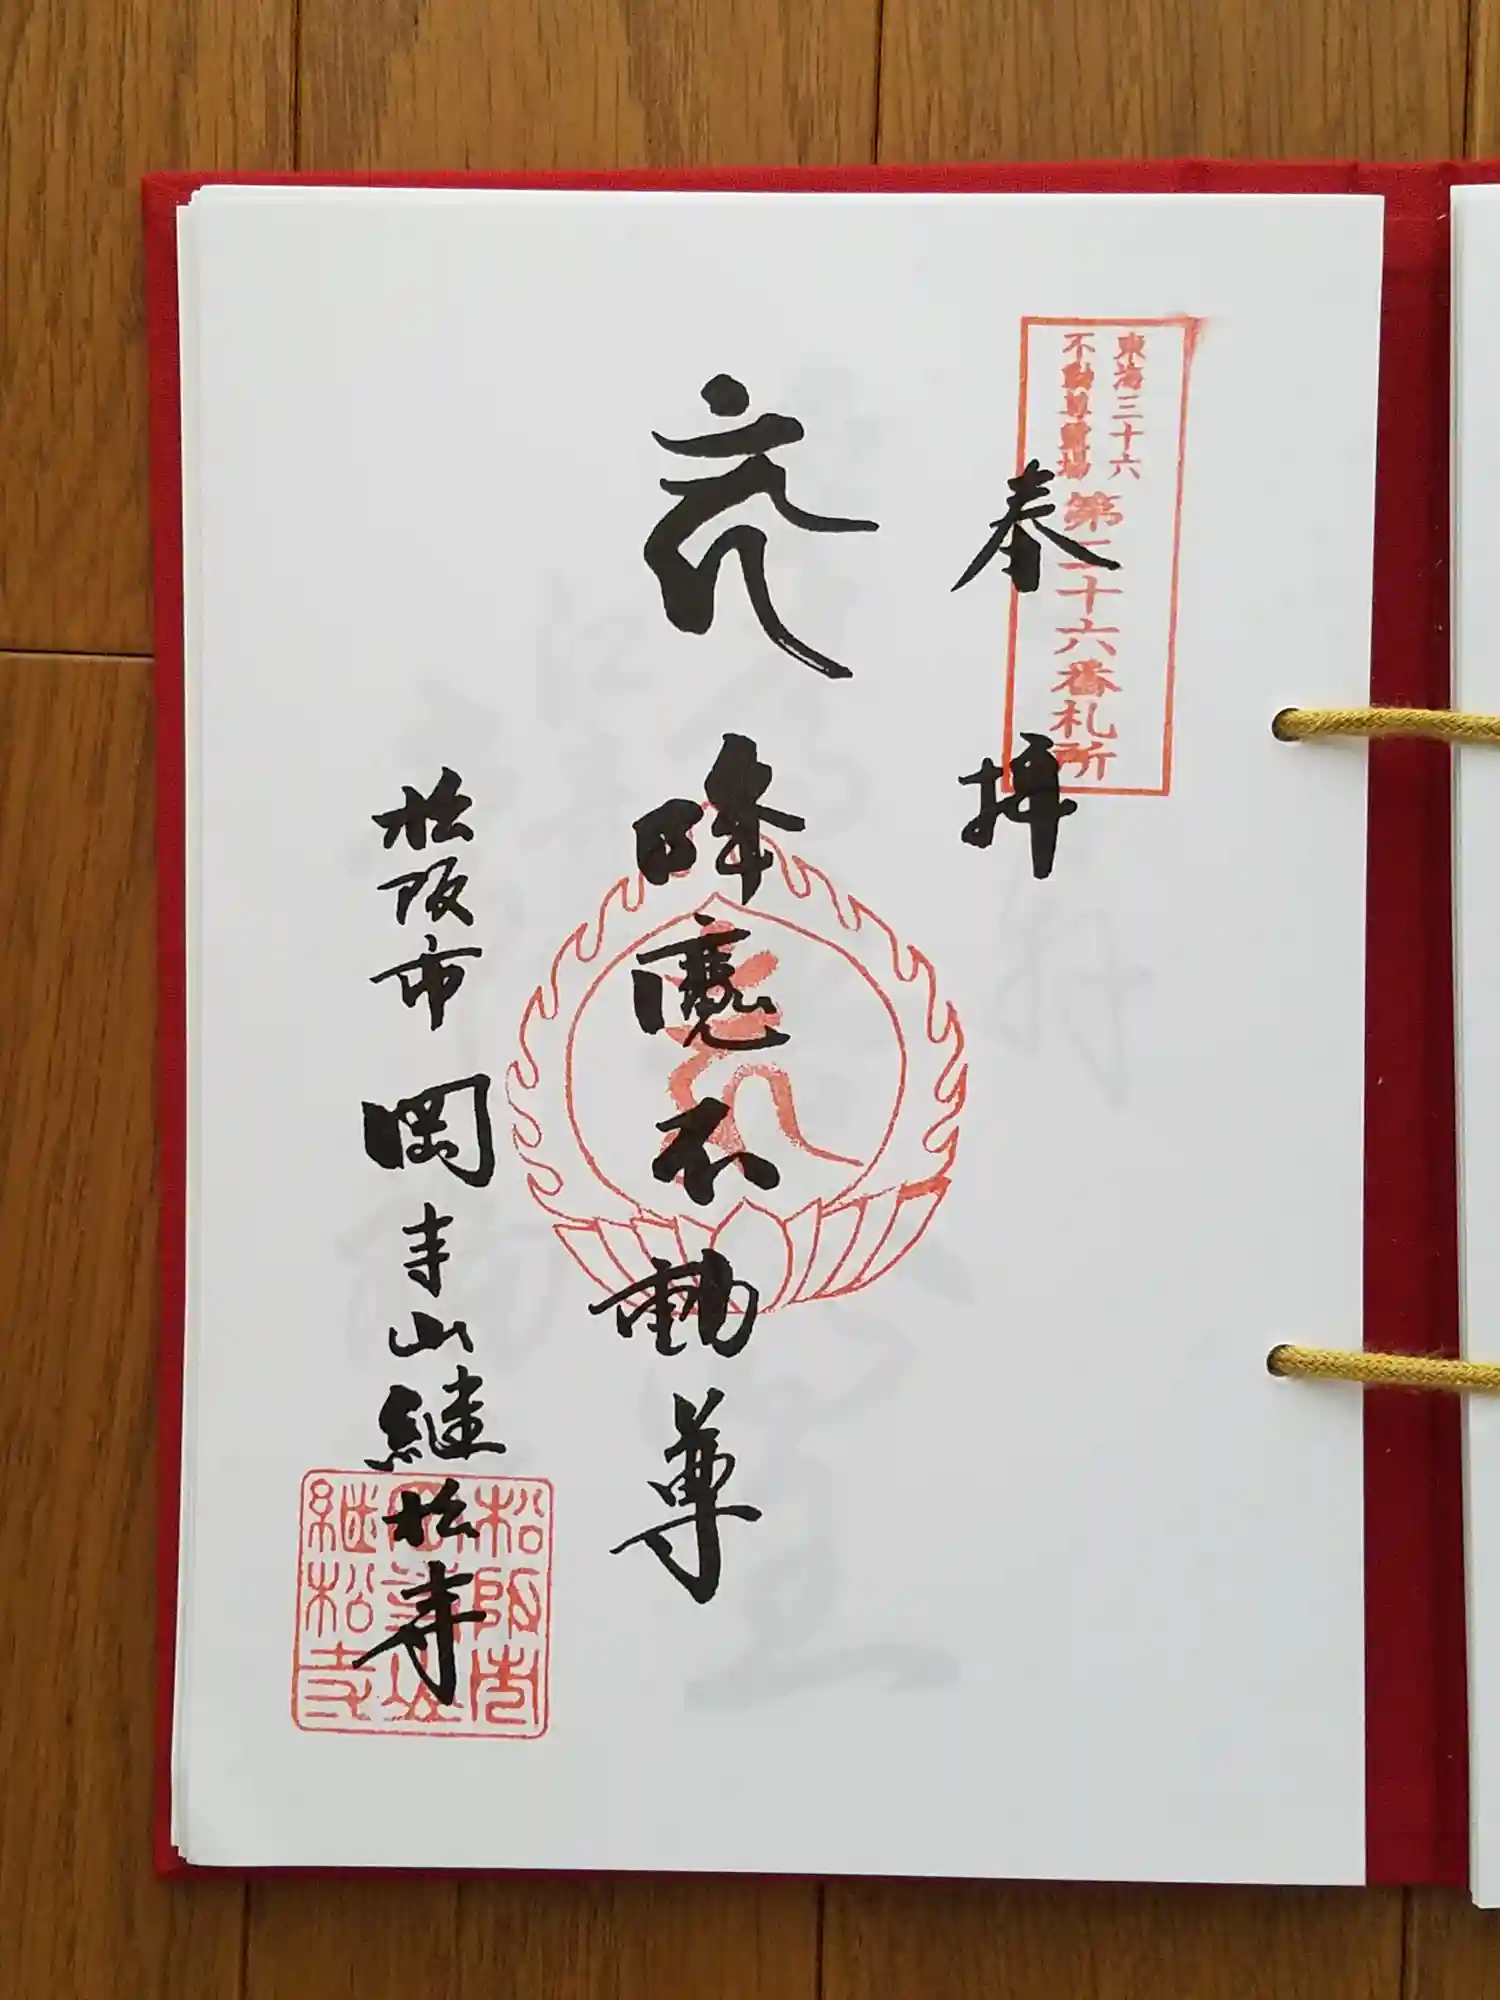 東海三十六
不動尊霊場
第三十六番札所
奉拝
降魔不動尊
松阪市 岡寺山継松寺
松阪市
岡寺山
継松寺